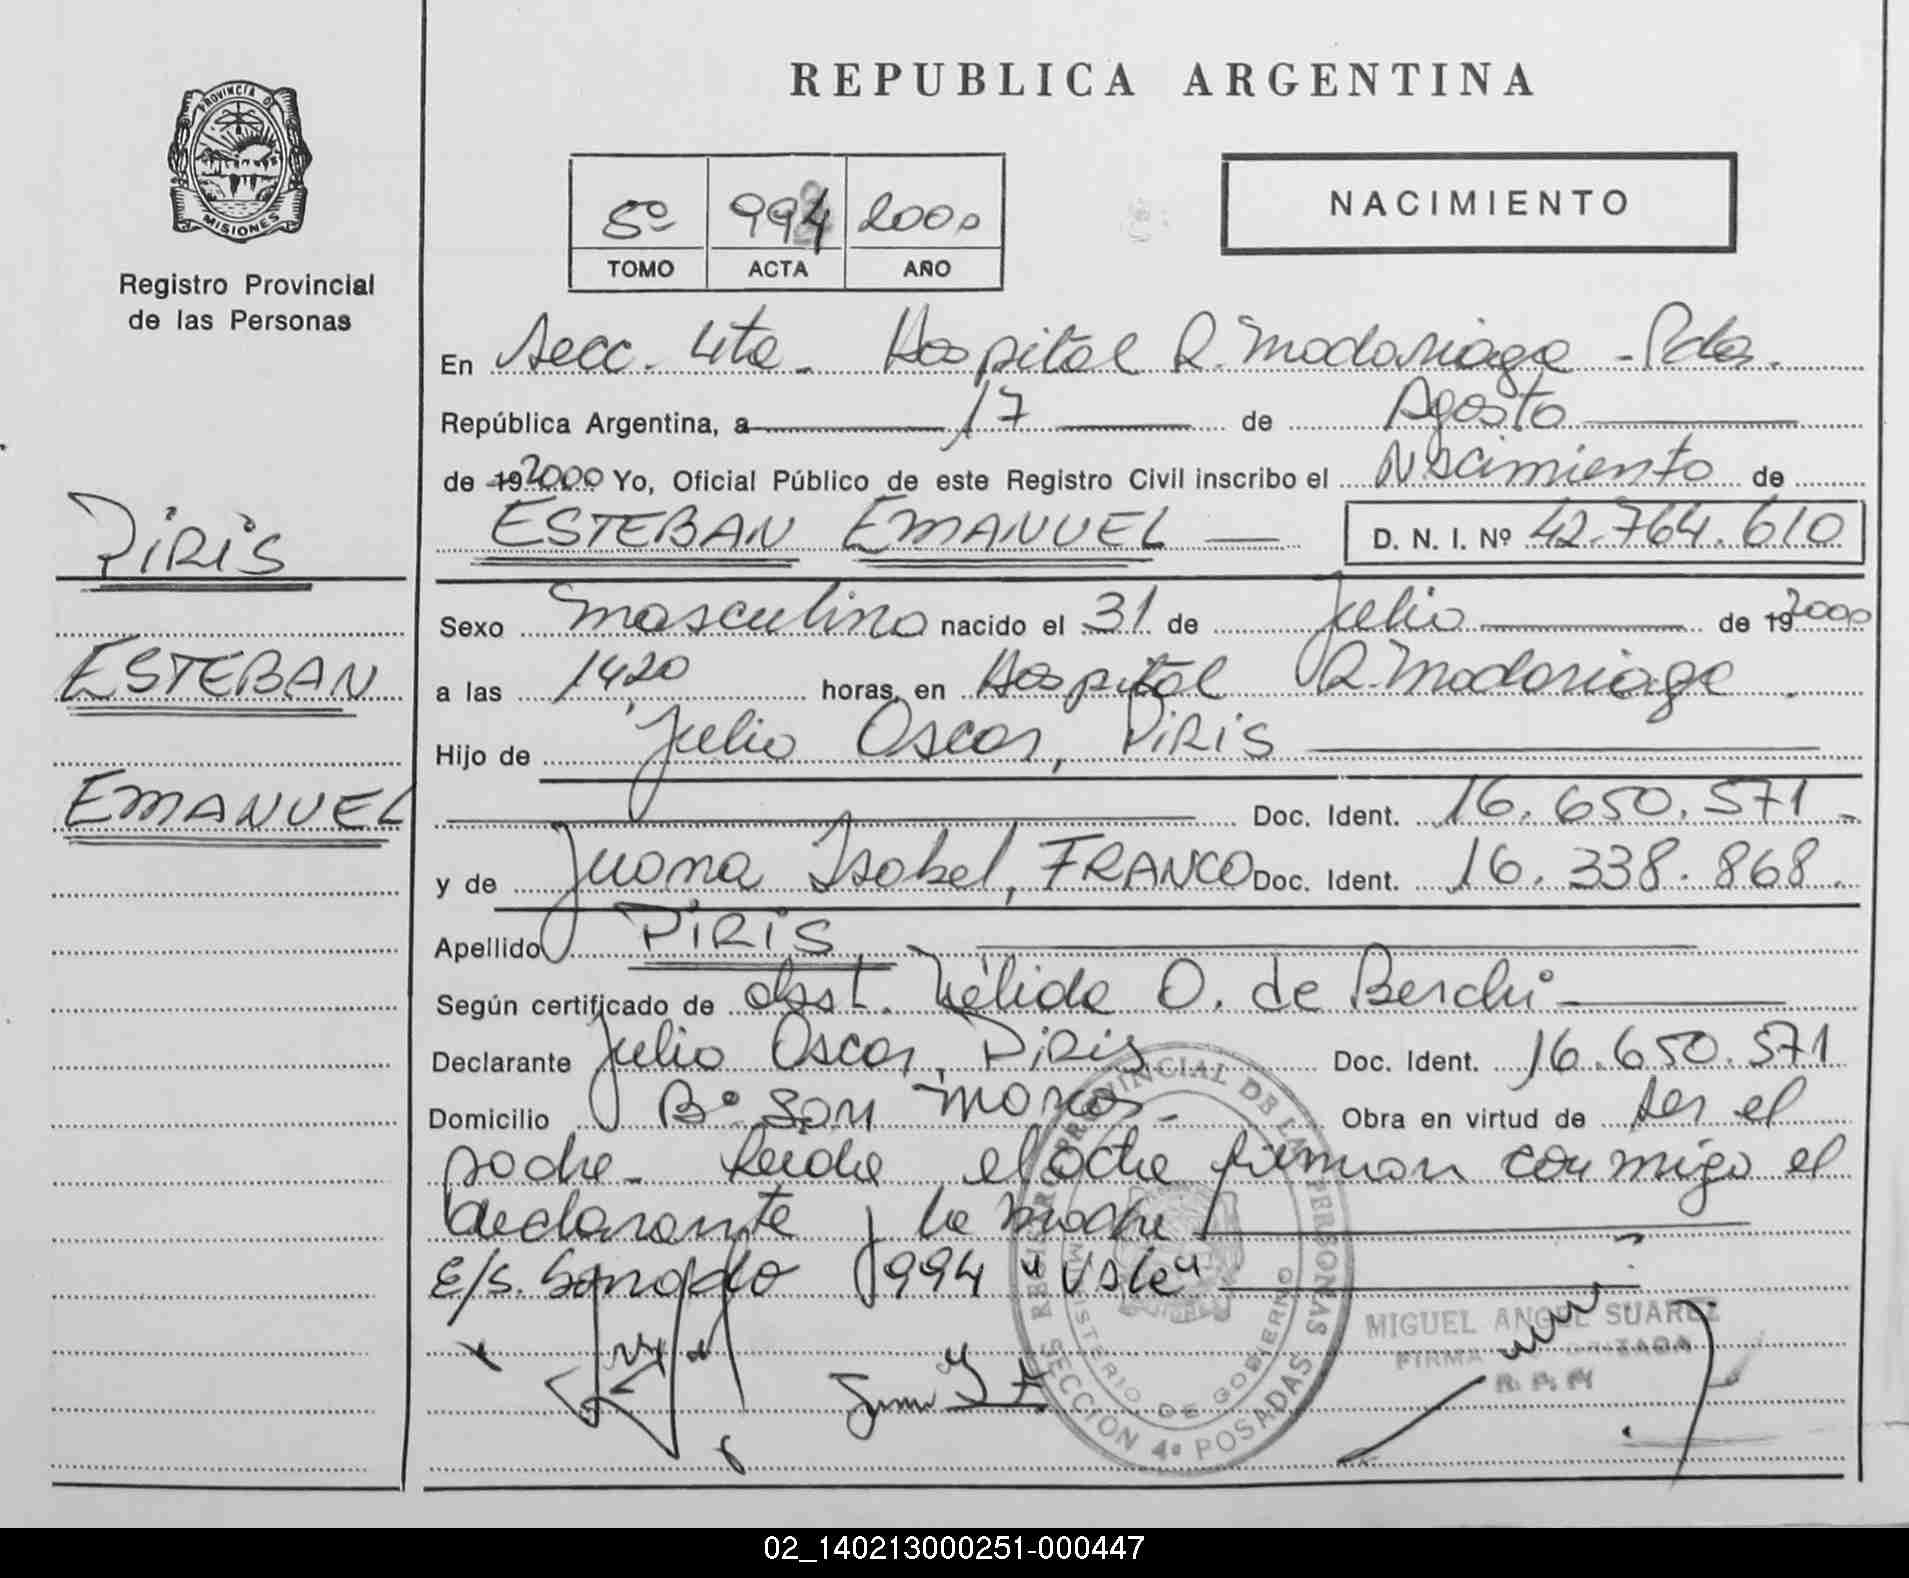 PROVINCIA DE
MISIONES
Registro Provincial
de las Personas
PIRIS
ESTEBAN
EMANUEL
REPUBLICA ARGENTINA
5º 994 2000
TOMO ACTA AÑO
NACIMIENTO
En Secc. 4ta. Hospital R. Madariaga - Pdas.
República Argentina, a 17 de Agosto
de 19 2000 Yo, Oficial Público de este Registro Civil inscribo el Nacimiento de
ESTEBAN EMANUEL D. N. I. Nº 42.764.610
Sexo Masculino nacido el 31 de Julio de 19 2000
a las 1420 horas, en Hospital R. Madariaga.
Hijo de Julio Oscar, PIRIS
Doc. Ident. 16.650.571.-
y de Juana Isabel, FRANCO Doc. Ident. 16.338.868.
Apellido PIRIS
Según certificado de obst. Nélida O. de Berchi
Declarante Julio Oscar, PIRIS Doc. Ident. 16.650.571
Domicilio Bº San Marcos.- Obra en virtud de ser el
padre. Leída el acta firman conmigo el
declarante y la madre
E/S. Borrado 994 "Vale"
REGISTRO PROVINCIAL DE LAS PERSONAS
MINISTERIO DE GOBIERNO
SECCION 4ª POSADAS
MIGUEL ANGEL SUAREZ
FIRMA AUTORIZADA
02_140213000251-000447